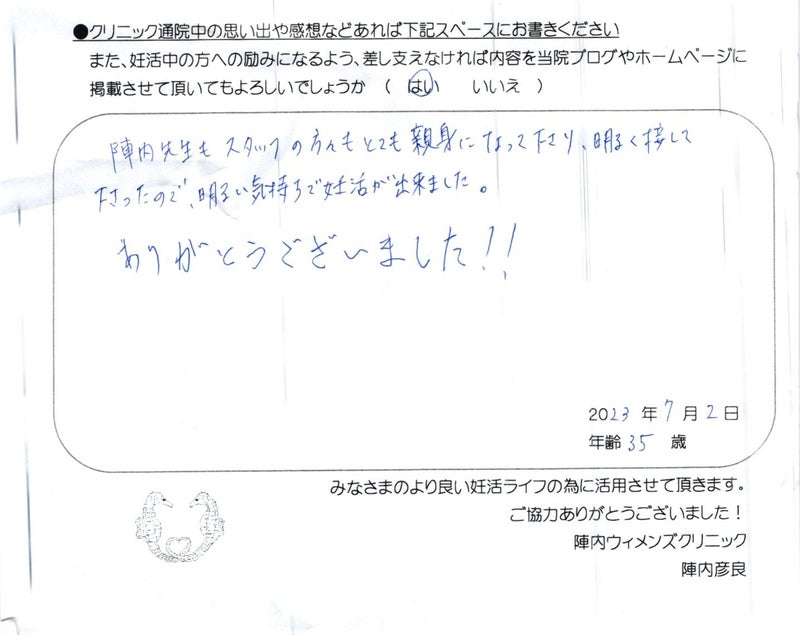 ●クリニック通院中の思い出や感想などあれば下記スペースにお書きください
また、妊活中の方への励みになるよう、差し支えなければ内容を当院ブログやホームページに
掲載させて頂いてもよろしいでしょうか （ はい いいえ ）
陣内先生も スタッフの方々もとても親身になって下さり、明るく接して
下さったので、明るい気持ちで妊活が出来ました。
ありがとうございました!!
2023 年 7 月 2 日
年齢 35 歳
みなさまのより良い妊活ライフの為に活用させて頂きます。
ご協力ありがとうございました！
陣内ウィメンズクリニック
陣内彦良